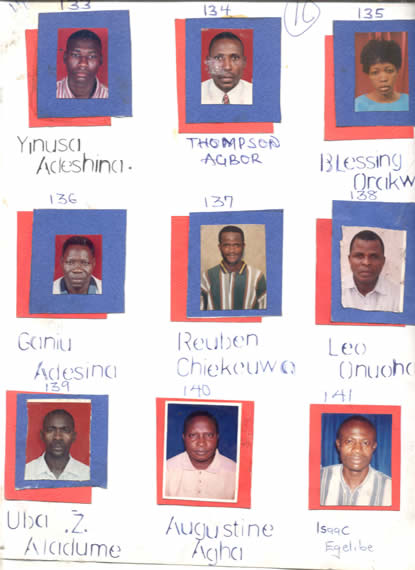 133
134
(16)
135
Yinusa
Adeshina.
THOMPSON
AGBOR
BLessing
Orakw
136
137
138
Ganiu
Adesina
Reuben
Chiekeuwa
Leo
Onuoha
139
140
141
Uba .Z.
Aladume
Augustine
Agha
Isaac
Egelibe